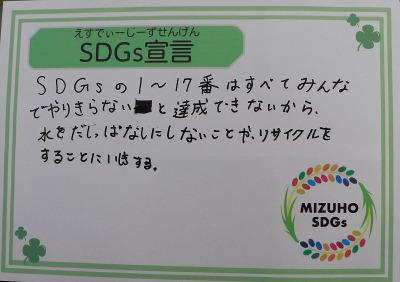 えすでぃーじーずせんげん
SDGs宣言
SDGsの1～17番はすべてみんな
でやりきらないと達成できないから、
水をだしっぱなしにしないことや、リサイクルを
することにする。
MIZUHO
SDGs